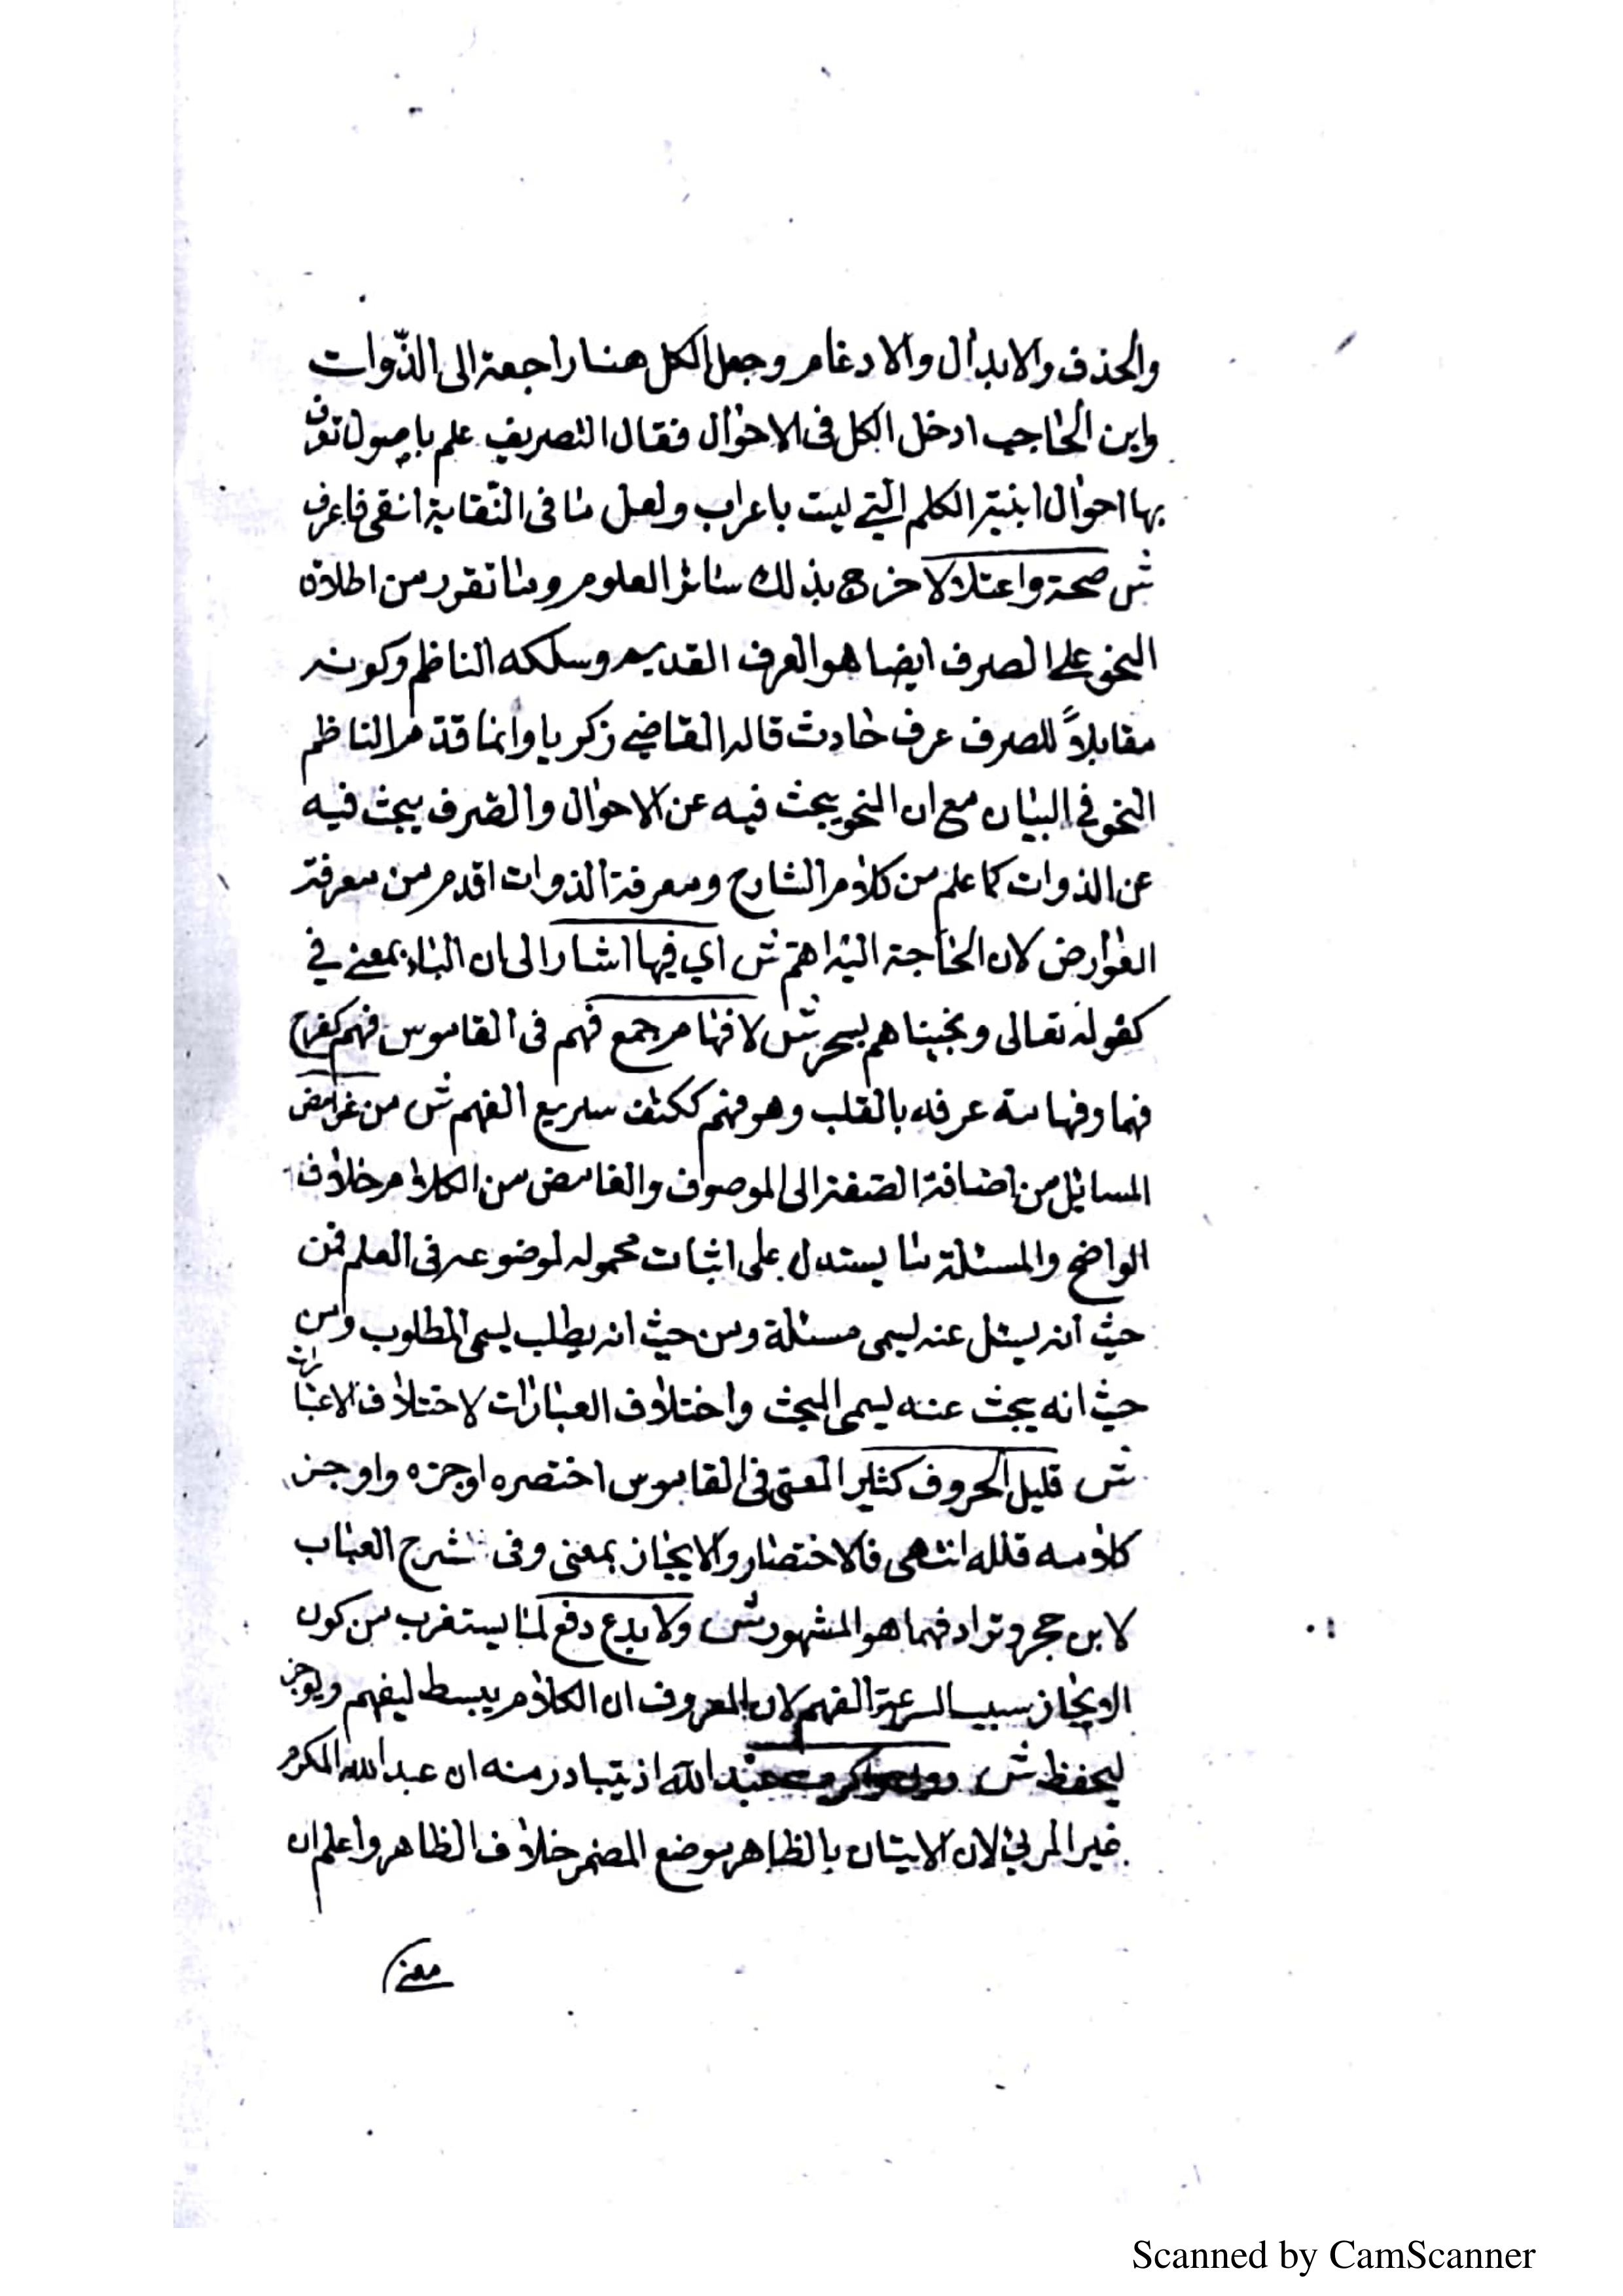 والحذف والابدال والادغام وجعل الكل هنا راجعة الى الذّوات
وابن الحاجب ادخل الكل فى الاحوال فقال التصريف علم باصول تعرف
بها احوال ابنية الكلم التي ليت باعراب ولعل ما فى النّقاية انقى فاعرف
ش صحة واعتلالا خرج بذلك سائر العلوم وما تقرر من اطلاق
النحو على الصرف ايضا هو العرف القديم وسلكه الناظم وكونه
مقابلاً للصرف عرف حادث قاله القاضي زكريا وانما قدّم الناظم
النحو في البيان مع ان النحو يبحث فيه عن الاحوال والصّرف يبحث فيه
عن الذوات كما علم من كلام الشارح ومعرفة الذوات اقدم من معرفة
العوارض لان الحاجة اليه اهم ش اي فيها اشار الى ان الباء بمعنى في
كقوله تعالى ونجيناهم بسحر ش لافهام جمع فهم فى القاموس فهم كفرح
فهما وفهامة عرفه بالقلب وهو فهم ككتف سريع الفهم ش من غوامض
المسائل من اضافة الصفة الى الموصوف والغامض من الكلام خلاف
الواضح والمسئلة ما يستدل على اثبات محموله لموضوعه فى العلم فمن
حيث انه يسئل عنه يسمى مسئلة ومن حيث انه يطلب يسمى المطلوب ومن
حيث انه يبحث عنه يسمى المبحث واختلاف العبارات لاختلاف الاعتبارات
ش قليل الحروف كثير المعنى فى القاموس اختصره اوجزه واوجز
كلامه قلله انتهى فالاختصار والايجاز بمعنى وفى شرح العباب
لابن حجر وترادفهما هو المشهور ش ولا بدع دفع لما يستغرب من كون
الايجاز سببا لسرعة الفهم لان المعروف ان الكلام يبسط ليفهم ويوجز
ليحفظ ش عبد الله اذ يتبادر منه ان عبد الله المكرم
غير المربي لان الاتيان بالظاهر موضع المضمر خلاف الظاهر واعلم ان
معنى
Scanned by CamScanner